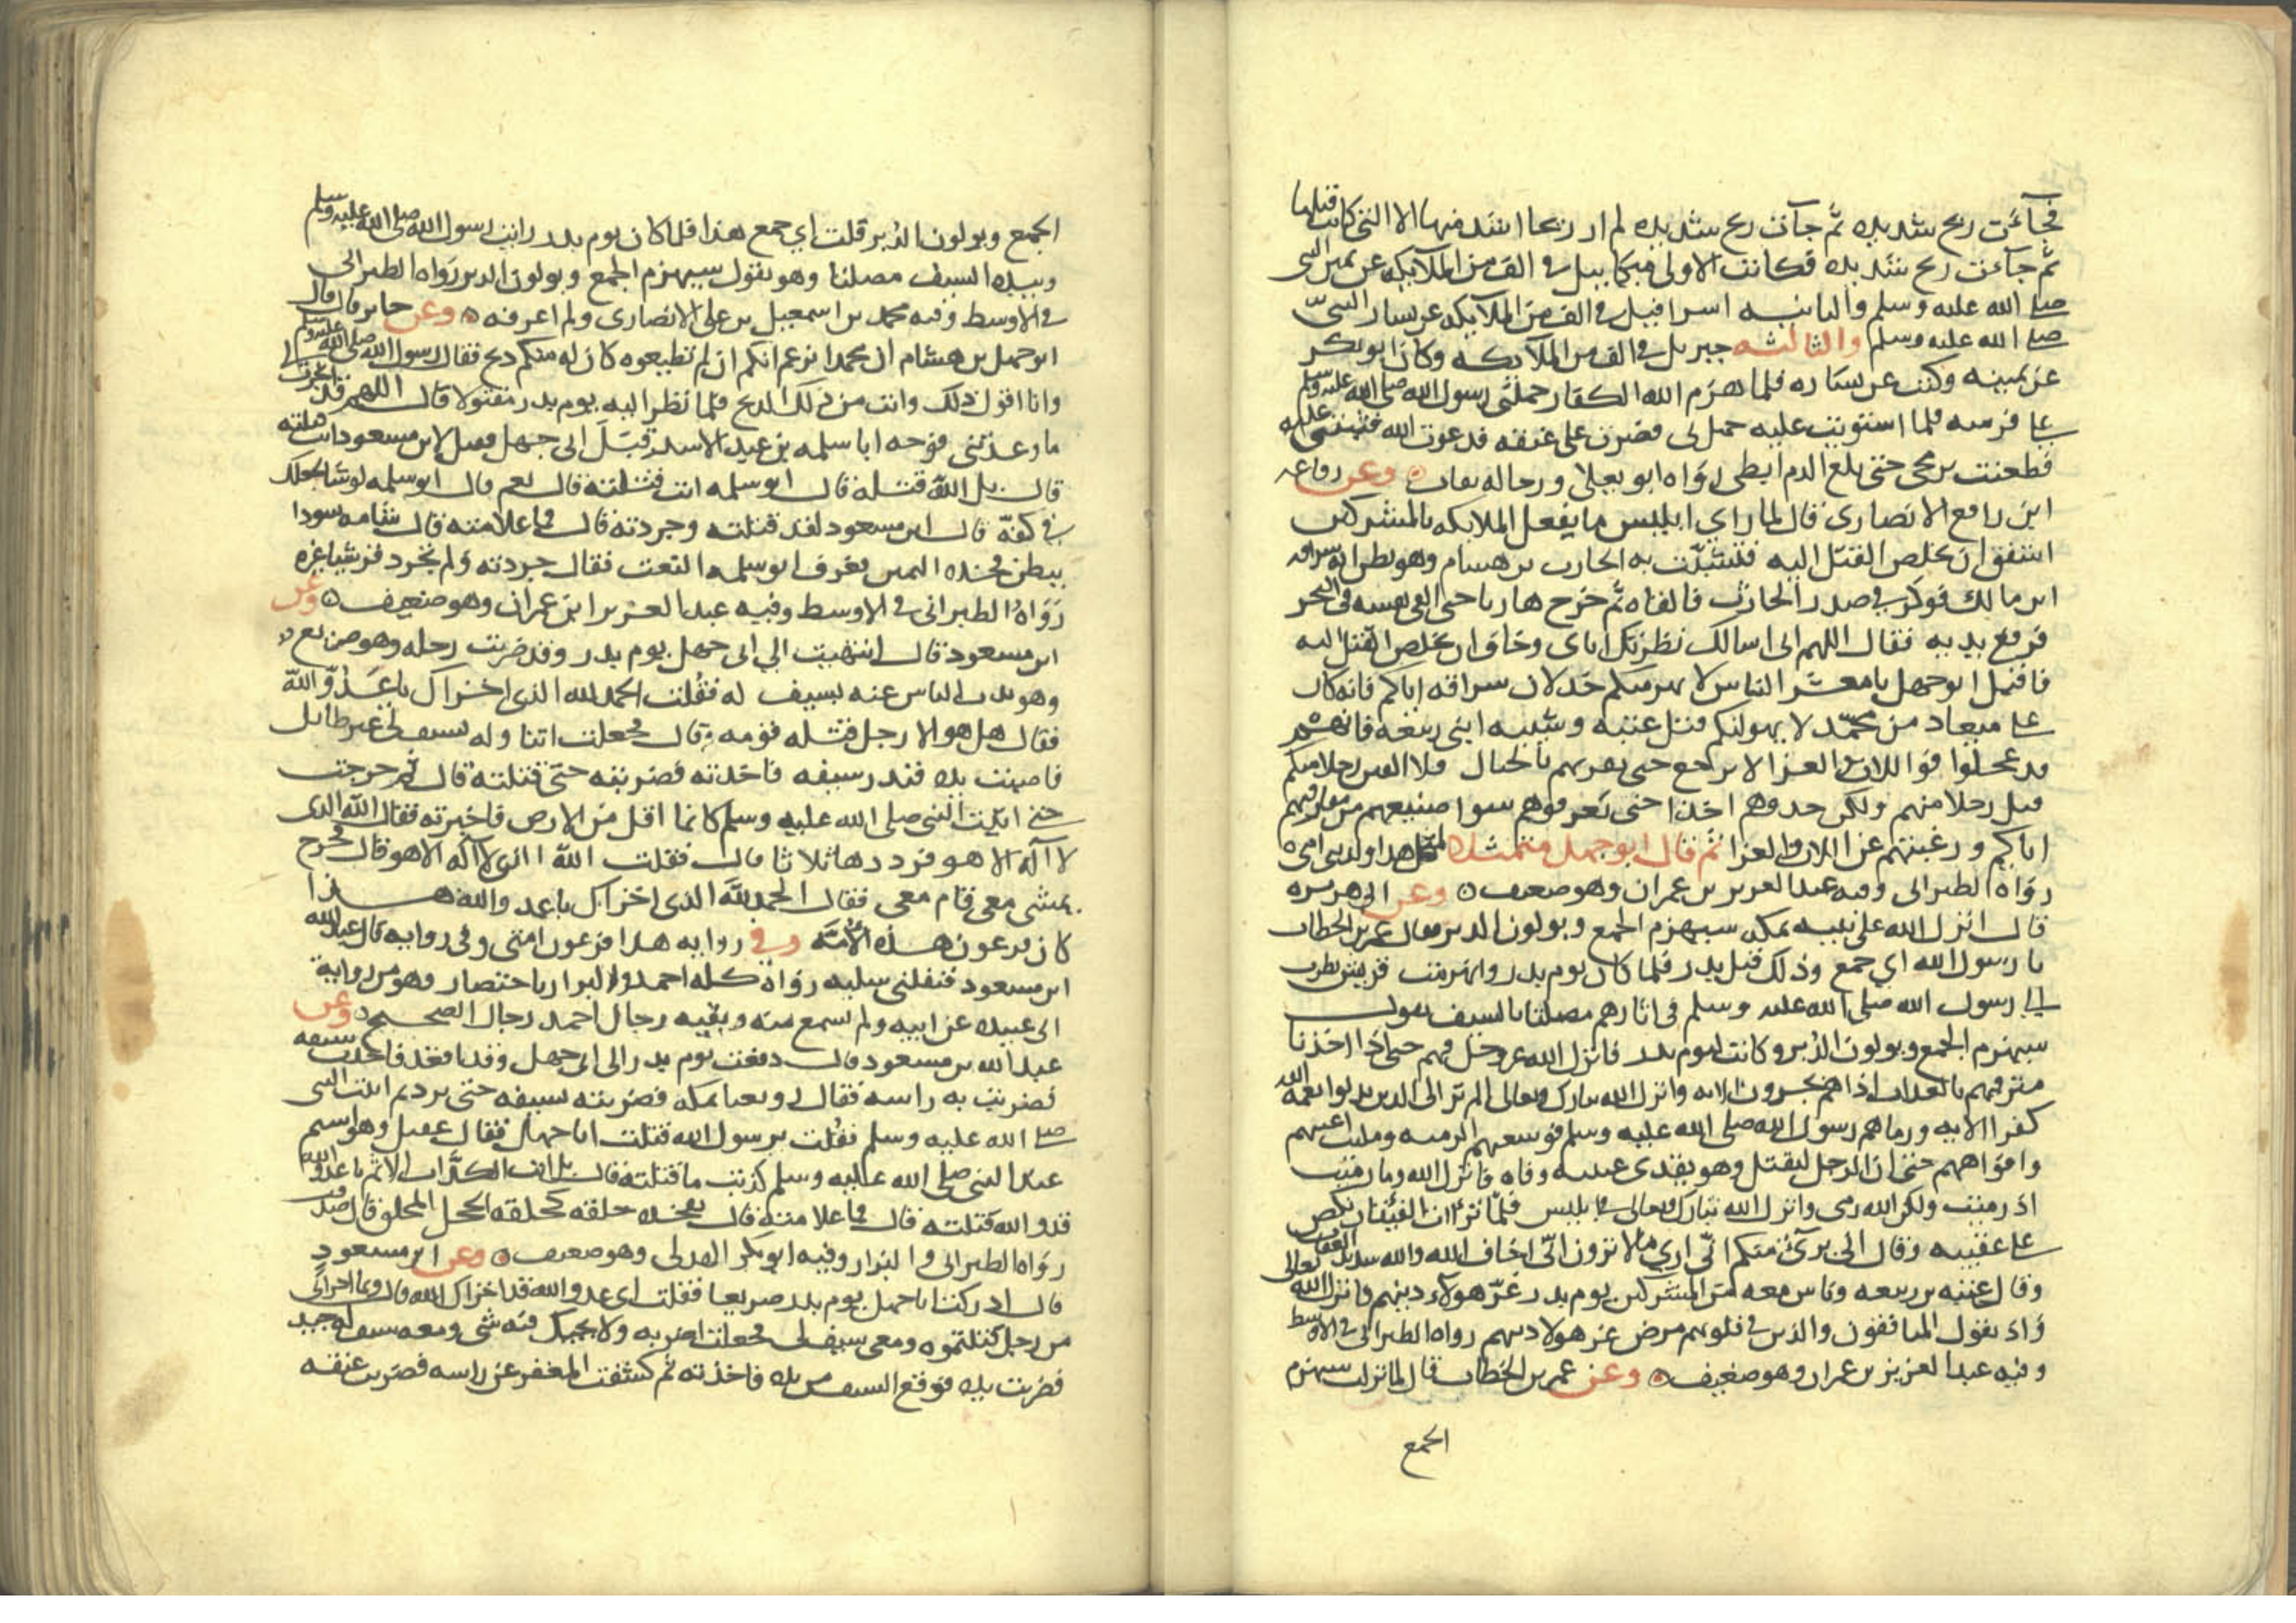 فجآءت ريح شديده ثم جآت ريح شديده لم ار ريحا اشد منها الا التي كانت قبلها
ثم جآءت ريح شديده فكانت الاولى ميكاييل في الف من الملآيكه عن يمين النبي
صلى الله عليه وسلم والثانيه اسرافيل في الف من الملآيكه عن يسار النبيّ
صلى الله عليه وسلم والثالثه جبريل في الف من الملآيكه وكان ابو بكر
عن يمينه وكنت عن يساره فلما هزم الله الكفار حملني رسول الله صلى الله عليه وسلم
على فرسه فلما استويت عليه حمل بي فصرت على عنقه فدعوت الله فثبتني عليه
فطعنت برمحي حتى بلغ الدم ابطي رواه ابو يعلى ورجاله ثقات وعن رفاعه
ابن رافع الانصاري قال لما راي ابليس ما يفعل الملايكه بالمشركين
اشفق ان يخلص القتل اليه فتشبّث به الحارث بن هشام وهو يظن انه سراقه
ابن مالك فوكز في صدر الحارث فالقاه ثم خرج هاربا حتى القى نفسه في البحر
فرفع يديه فقال اللهم اني اسالك نظرتك اياى وخاف ان يخلص القتل اليه
فاقبل ابو جهل يا معشر الناس لا يهزمنكم خذلان سراقه اياكم فانه كان
على ميعاد من محمّد لا يهولنكم قتل عتبه وشيبه ابنى ربيعه فانهم
قد عجلوا فواللات والعزا لا نرجع حتى نقرنهم بالحبال فلا الفين رجلا منكم
قتل رجلا منهم ولكن خدوهم اخذا حتى تعرفوهم سوا صنيعهم من مفارقتهم
اياكم ورغبتهم عن اللات والعزا ثم قال ابو جهل متمثلا لمثل هدا ولدتني امي
رواه الطبراني وفيه عبد العزيز بن عمران وهو ضعيف وعن ابي هريره
قال انزل الله على نبيه بمكه سيهزم الجمع ويولون الدبر فقال عمر بن الخطاب
يا رسول الله اي جمع وذلك قبل بدر فلما كان يوم بدر وانهزمت قريش نظرت
الى رسول الله صلى الله عليه وسلم في اثارهم مصلتا بالسيف يقول
سيهزم الجمع ويولون الدُبر وكانت ليوم بدر فانزل الله عز وجل فيهم حتى اذا اخذنا
مترفيهم بالعذاب اذا هم يجرون الايه وانزل الله تبارك وتعالى الم تر الى الدين بدلوا نعمة الله
كفرا الايه ورماهم رسول الله صلى الله عليه وسلم فوسعتهم الرميه وملت اعينهم
وافواههم حتى ان الرجل ليقتل وهو يقذى عينيه وفاه فانزل الله وما رميت
اذ رميت ولكن الله رمى وانزل الله تبارك وتعالى في ابليس فلمّا ترآت الفئتان نكص
على عقبيه وقال انى برئ منكم انّي اري ما لا ترون انّي اخاف الله والله شديد العقاب
وقال عتبه بن ربيعه وناس معه من المشركين يوم بدر غرّ هولآء دينهم فانزل الله تعالى
وَاذ يقول المنافقون والذين في قلوبهم مرض غر هولا دينهم رواه الطبراني في الاوسط
وفيه عبد العزيز بن عمران وهو ضعيف وعن عمر بن الخطاب قال لما نزلت سيهزم
الجمع
الجمع ويولون الدُبر قلت اي جمع هذا فلما كان يوم بدر رايت رسول الله صلى الله عليه وسلم
وبيده السيف مصلتا وهو يقول سيهزم الجمع ويولون الدبر رواه الطبراني
في الاوسط وفيه محمد بن اسمعيل بن علي الانصارى ولم اعرفه وعن جابر قال قال
ابو جهل بن هشام ان محمدا يزعم انكم ان لم تطيعوه كان له منكم ذبح فقال رسول الله صلى الله عليه وسلم
وانا اقول ذلك وانت من ذلك الذبح فلما نظر اليه يوم بدر مقتولا قال اللهم قد انجزت لي
ما وعدتني فوجه ابا سلمه بن عبد الاسد قبل ابي جهل فقيل لابن مسعود انت قتلته
قال بل الله قتله قال ابو سلمه انت قتلته قال نعم قال ابو سلمه لو شا لجعلك
في كفّه قال ابن مسعود لقد قتلته وجردته قال فما علامته قال شامه سودا
ببطن فخذه اليمين فعرف ابو سلمه النعت فقال جردته ولم يجرد قرشيا غيره
رَوَاهُ الطبراني في الاوسط وفيه عبد العزيز ابن عمران وهو ضعيف وعن
ابن مسعود قال انتهيت الي ابى جهل يوم بدر وقد ضربت رجله وهو صريع
وهو يذب الناس عنه بسيف له فقُلت الحمد لله الذي اخزاك يا عَدُوّ الله
فقال هل هو الا رجل قتله قومه قال فجعلت اتناوله بسيف لي غير طايل
فاصبت يده فندر سيفه فاخذته فضربته حتى قتلته قال ثم خرجت
حتى اتيت النبي صلى الله عليه وسلم كانما اقل من الارض فاخبرته فقال الله الذى
لا اله الا هو فرددها ثلاثا قال فقلت الله الذي لا آله الا هو قال فخرج
يمشى معي قام معي فقال الحمد لله الذى اخزاك يا عدو الله هذا
كان فرعون هذه الأمّه وفي روايه هدا فرعون امتى وفى روايه قال عبد الله
ابن مسعود فنفلنى سلبه رواه كله احمد والبزار باختصار وهو من رواية
ابى عبيده عن ابيه ولم يسمع منه وبقيه رجال احمد رجال الصحيح وعن
عبد الله بن مسعود قال دفعت يوم بدر الى ابى جهل وقد اقعد فاخذت سيفه
فضربت به راسه فقال رويعيا بمكه فضربته بسيفه حتى برد ثم اتيت النبى
صلى الله عليه وسلم فقُلت يرسول الله قتلت ابا جهل فقال عقيل وهو اسير
عند النبي صلى الله عليه وسلم كذبت ما قتلته قال بل انت الكذاب الاثم يا عدو الله
قد والله قتلته قال فما علامته قال بفخذه حلقه كحلقه الجمل المحلق قال صدقت
رواه الطبراني والبزار وفيه ابو بكر الهدلى وهو ضعيف وعن ابن مسعود
قال ادركت ابا جهل يوم بدر صريعا فقلت اى عدو الله قد اخزاك الله قال وبما اخزانى
من رجل قتلتموه ومعى سيف لى فجعلت اضربه ولا يحيك فيه شى ومعه سيف له جيد
فضربت يده فوقع السيف من يده فاخذته ثم كشفت المغفر عن راسه فضربت عنقه